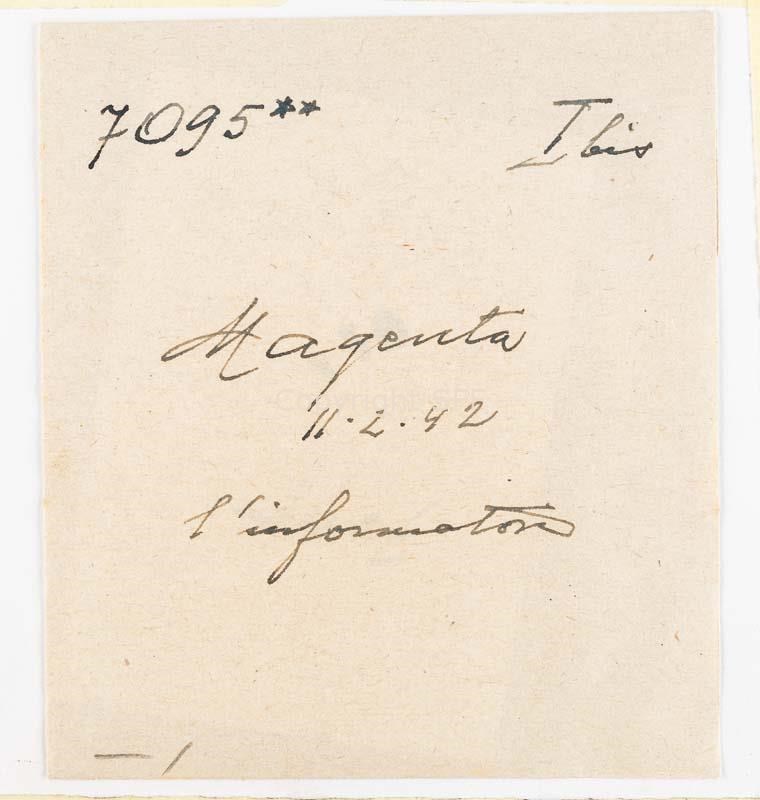 7095** Ibis
Magenta
11.2.42
l'informatore